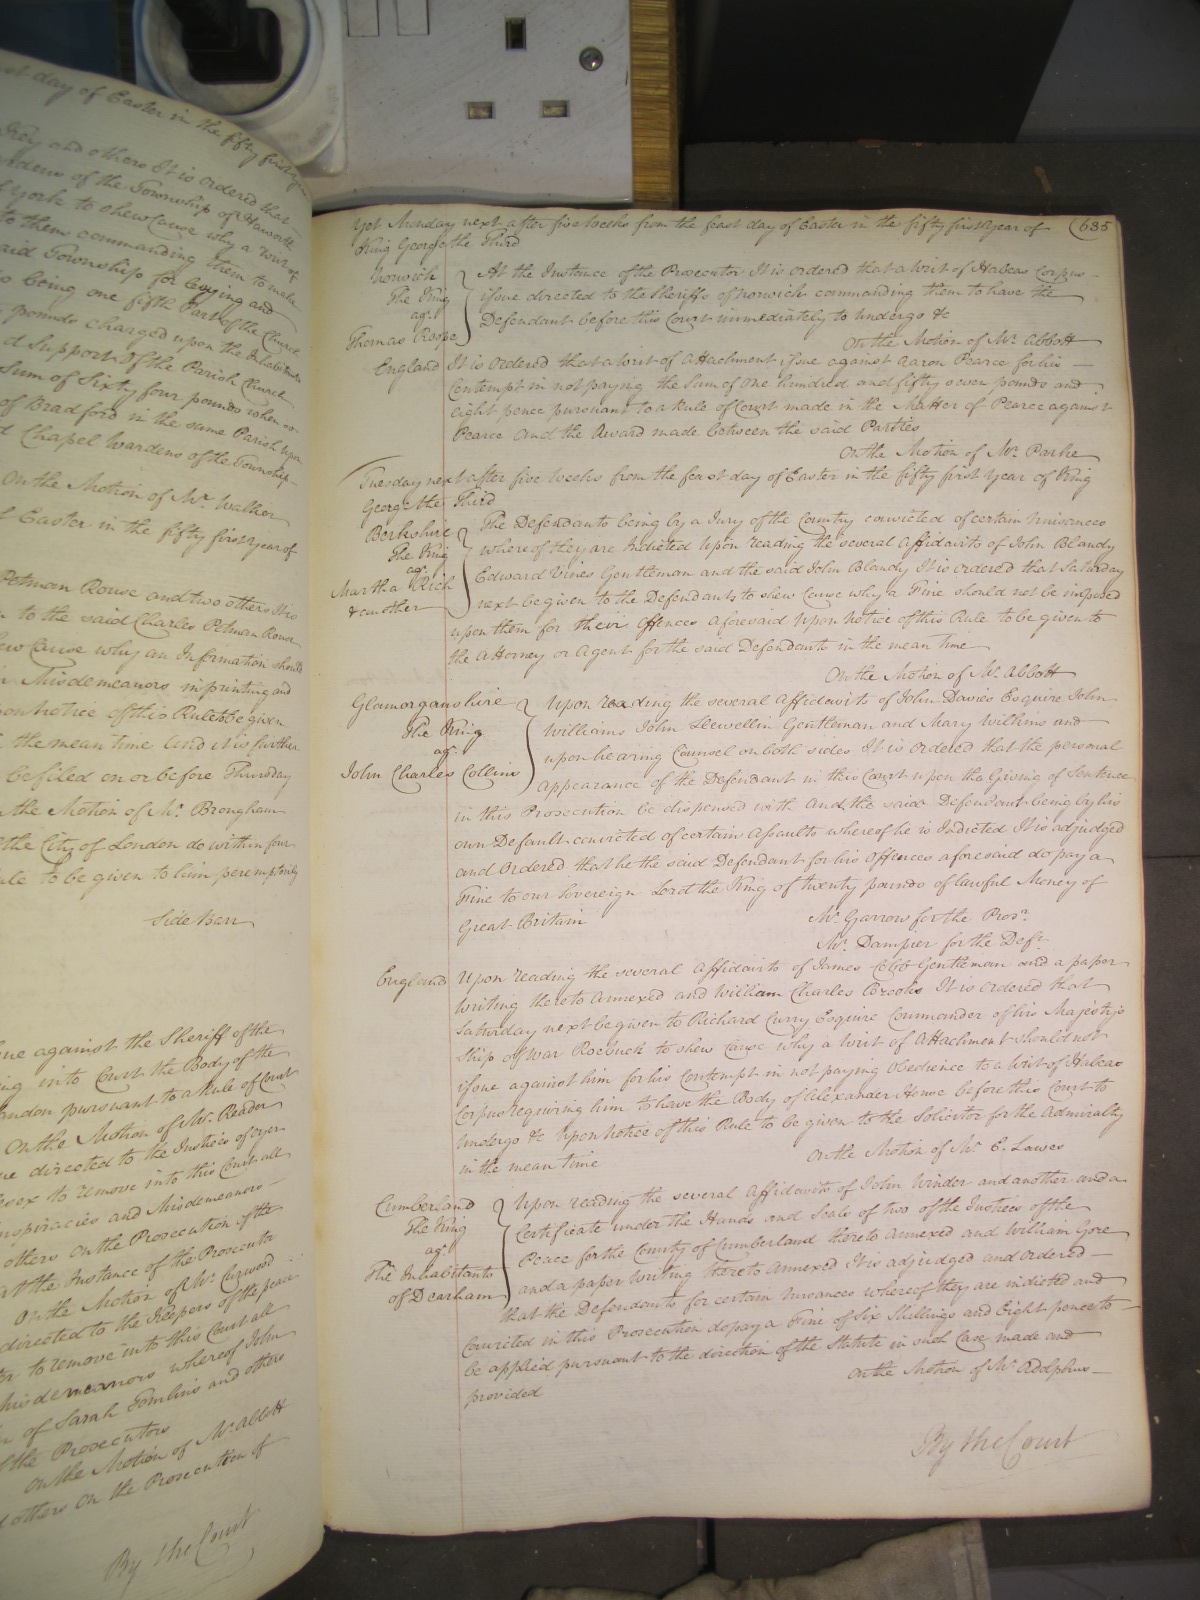 st day of Easter in the fifty first year
Frey and others It is ordered that
wardens of the Township of Haworth
York to shew Cause why a Writ of
to them commanding them to make
said Township for levying and
being one fifth Part of the Church
pounds charged upon the Inhabitants
d support of the Parish Church
Sum of Sixty four pounds when so
of Bradford in the same Parish upon
d Chapel Wardens of the Township
On the Motion of Mr. Walker
f Easter in the fifty first year of
Petman Rouse and two others It is
to the said Charles Petman Rouse
ew Cause why an Information should
Misdemeanors in printing and
pon notice of this Rule to be given
the mean time And it is further
be filed on or before Thursday
the Motion of Mr. Brougham
the City of London do within four
ule to be given to him peremptorily
Side Barr
ue against the Sheriff of the
ing into Court the Body of the
London pursuant to a Rule of Court
On the Motion of Mr. Reader
ue directed to the Justices of oyer
lesex to remove into this Court all
nspiracies and Misdemeanors
others On the Prosecution of the
at the Instance of the Prosecutor
On the Motion of Mr. Curwood
directed to the Keepers of the peace
to remove into this Court all
Misdemeanors whereof John
of Sarah Tomlins and others
f the Prosecutors
On the Motion of Mr. Abbott
d others On the Prosecution of
By the Court
Yet Monday next after five Weeks from the feast day of Easter in the fifty first Year of (685
King George the Third
Norwich
The King
agt.
Thomas Roope
At the Instance of the Prosecutor It is ordered that a Writ of Habeas Corpus
issue directed to the Sheriffs of Norwich commanding them to have the
Defendant before this Court immediately to undergo &c
On the Motion of Mr. Abbott
England It is Ordered that a Writ of Attachment issue against Aaron Pearce for his
Contempt in not paying the Sum of One hundred and fifty seven pounds and
eight pence pursuant to a Rule of Court made in the Matter of Pearce against
Pearce and the Award made between the said Parties
On the Motion of Mr. Parke
Tuesday next after five Weeks from the feast day of Easter in the fifty first Year of King
George the Third
Berkshire
The King
agt.
Martha Rich
& another
The Defendants being by a Jury of the Country convicted of certain Nuisances
whereof they are Indicted Upon reading the several Affidavits of John Blandy
Edward Vines Gentleman and the said John Blandy It is ordered that Saturday
next be given to the Defendants to shew Cause why a Fine should not be imposed
upon them for their Offences aforesaid Upon Notice of this Rule to be given to
the Attorney or Agent for the said Defendants in the mean time
On the Motion of Mr. Abbott
Glamorganshire
The King
agt.
John Charles Collins
Upon reading the several Affidavits of John Davies Esquire John
Williams John Llewellin Gentleman and Mary Wilkins and
upon hearing Counsel on both sides It is Ordered that the personal
appearance of the Defendant in this Court upon the Giving of Sentence
in this Prosecution be dispensed with And the said Defendant being by his
own Default convicted of certain Assaults whereof he is Indicted It is adjudged
and Ordered that he the said Defendant for his Offences aforesaid do pay a
Fine to our Sovereign Lord the King of twenty pounds of lawful Money of
Great Britain
Mr. Garrow for the Prosr.
Mr. Dampier for the Deft.
England Upon reading the several Affidavits of James Cobb Gentleman and a paper
Writing thereto Annexed and William Charles Brooks It is Ordered that
Saturday next be given to Richard Curry Esquire Commander of his Majestys
Ship of War Roebuck to shew Cause why a Writ of Attachment should not
issue against him for his Contempt in not paying Obedience to a Writ of Habeas
Corpus requiring him to have the Body of Alexander House before this Court to
Undergo &c Upon Notice of this Rule to be given to the Solicitor for the Admiralty
in the mean time
On the Motion of Mr. E. Lawes
Cumberland
The King
agt.
The Inhabitants
of Dearham
Upon reading the several Affidavits of John Winder and another and a
Certificate under the Hands and Seals of two of the Justices of the
Peace for the County of Cumberland thereto Annexed and William Gore
and a paper Writing thereto Annexed It is adjudged and Ordered
that the Defendants for certain Nuisances whereof they are indicted and
Convicted in this Prosecution do pay a Fine of Six Shillings and Eight pence to
be applied pursuant to the direction of the Statute in such Case made and
provided
On the Motion of Mr. Adolphus
By the Court